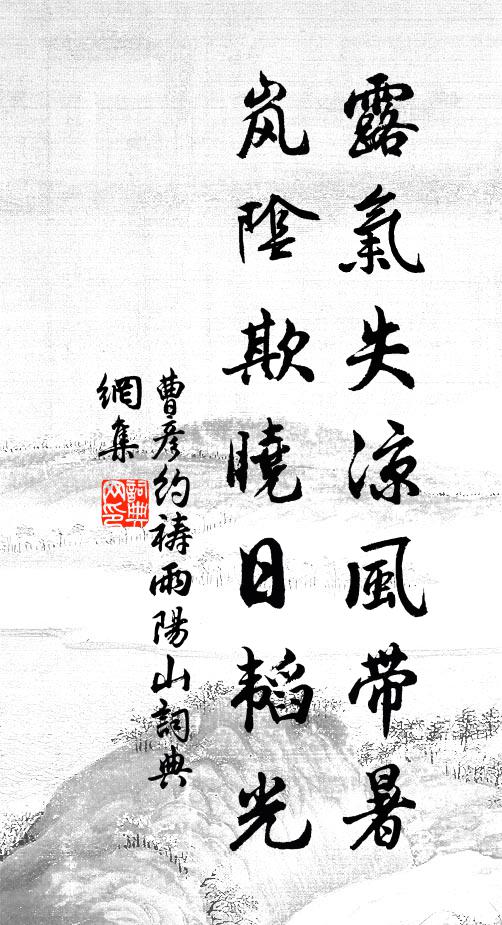 露氣失涼風帶暑
岚陰欺曉日韬光
曹彦约禱雨陽山詞典
網集
詞典
网印